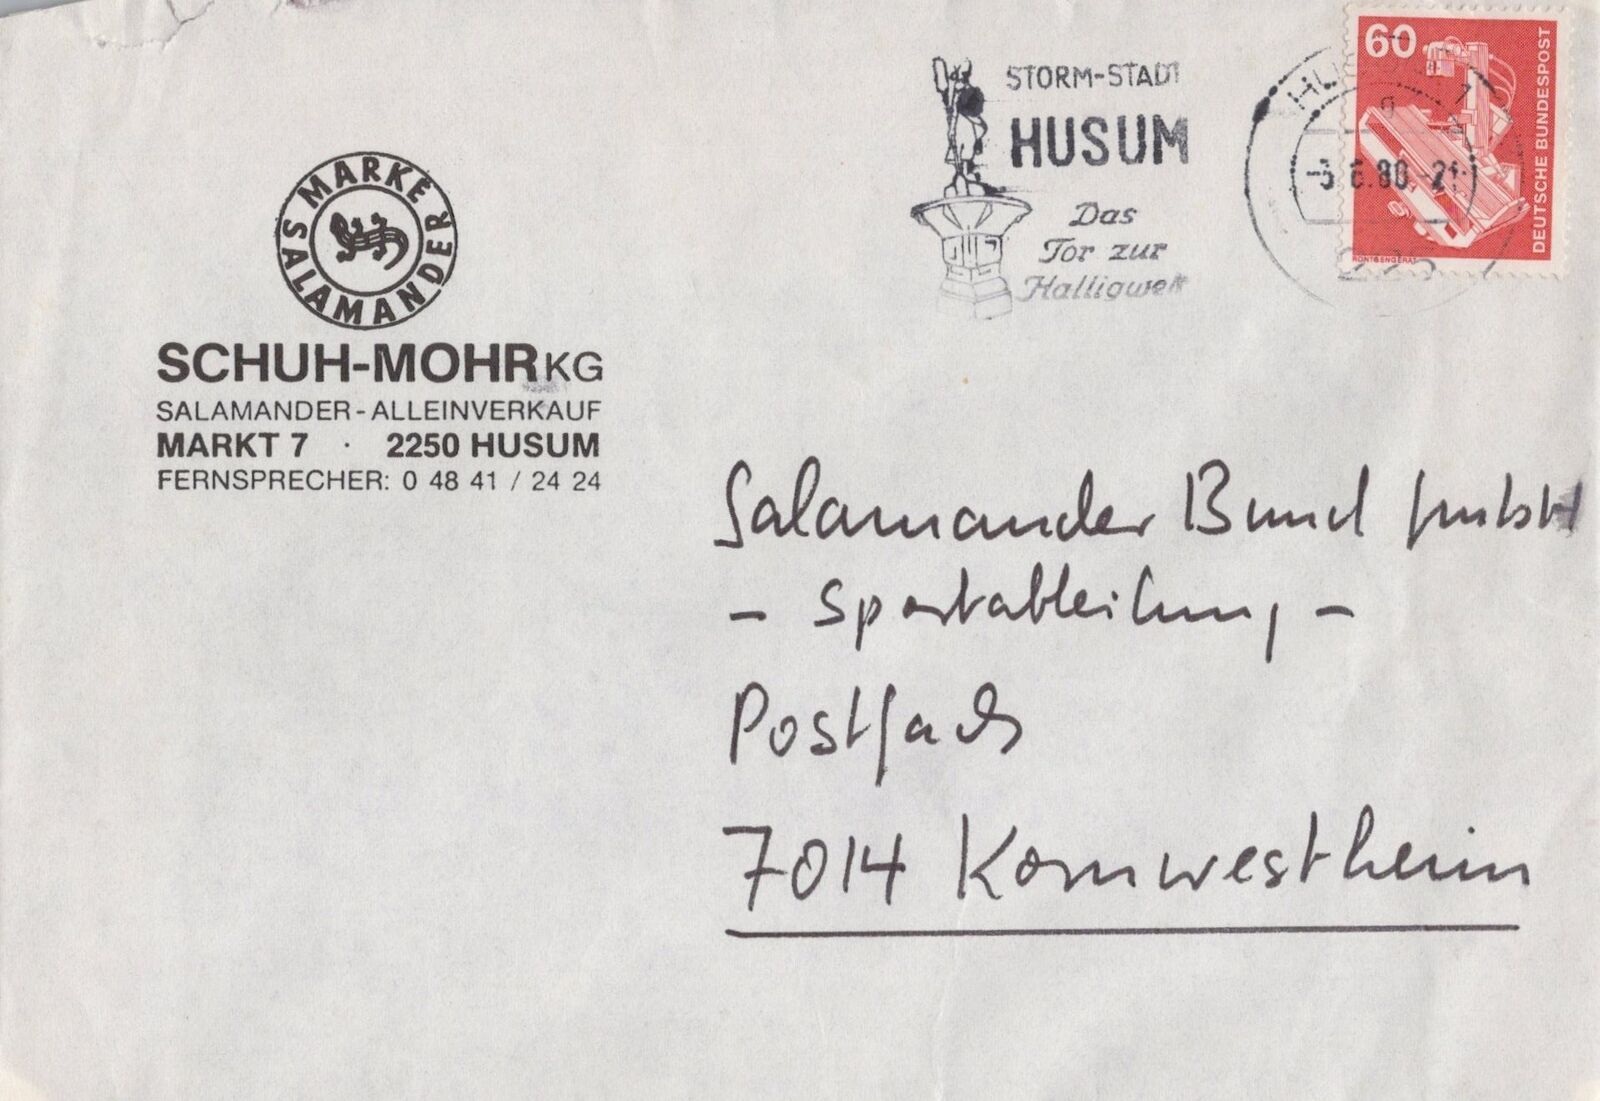 MARKE SALAMANDER
SCHUH-MOHR KG
SALAMANDER-ALLEINVERKAUF
MARKT 7 · 2250 HUSUM
FERNSPRECHER: 0 48 41 / 24 24
STORM-STADT
HUSUM
Das
Tor zur
Halligwelt
60
DEUTSCHE BUNDESPOST
RÖNTGENGERÄT
6.80.-21
Salamander Bund GmbH
- Sportabteilung -
Postfach
7014 Kornwestheim